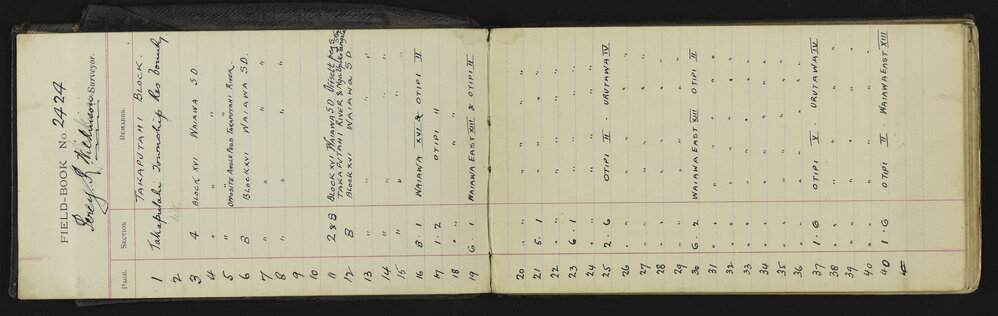 FIELD-BOOK No. 2424
Percy R Wilkinson Surveyor.
PAGE. SECTION REMARKS.
TAKAPUTAHI BLOCK.
1 Takaputahi Township Res Boundy
2
3 4 BLOCK XVI WAIAWA S D
4 " " " "
5 " OPPOSITE ANGLE PEGS TAKAPUTAHI RIVER.
6 8 BLOCK XVI WAIAWA S.D.
7 " " "
8 " " "
9
10
11 2 & 8 BLOCK XVI WAIAWA S.D.
TAKAPUTAHI RIVER &
12 8 BLOCK XVI WAIAWA S D.
13 " " "
14 " " "
15 " " "
16 8. 1 WAIAWA XVI & OTIPI II
17 1. 2 OTIPI "
18 " " " "
19 6. 1 WAIAWA EAST XIII & OTIPI II
20 " " "
21 5. 1 " "
22 " " "
23 6. 1 " "
24 " " "
25 2. 6 OTIPI II. URUTAWA IV
26 " " "
27 " " "
28 " " "
29 " " "
30 6. 2 WAIAWA EAST XIII OTIPI II
31 " " "
32 " " "
33 " " "
34 " " "
35 " " "
36 " " "
37 1. 6 OTIPI V. URUTAWA IV
38 " " "
39 " " "
40 " " "
40 1. 6 OTIPI II. WAIAWA EAST XIII